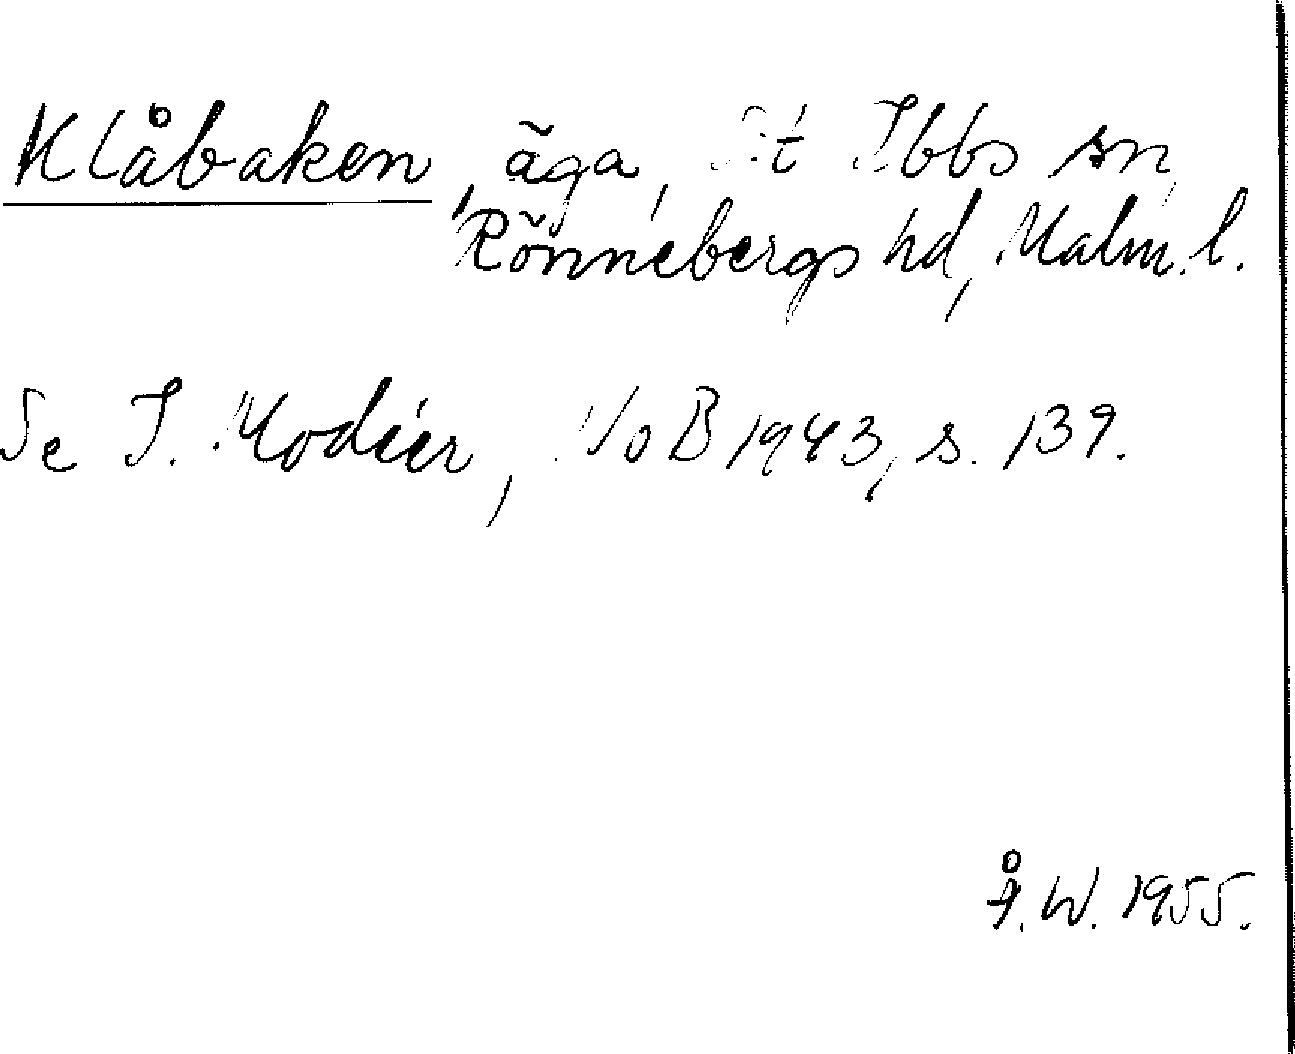 Klåbaken, äga, S:t Ibbs sn,
Rönnebergs hd, Malm. l.
Se I. Modéer, NoB 1943, s. 139.
Å. W. 1955.